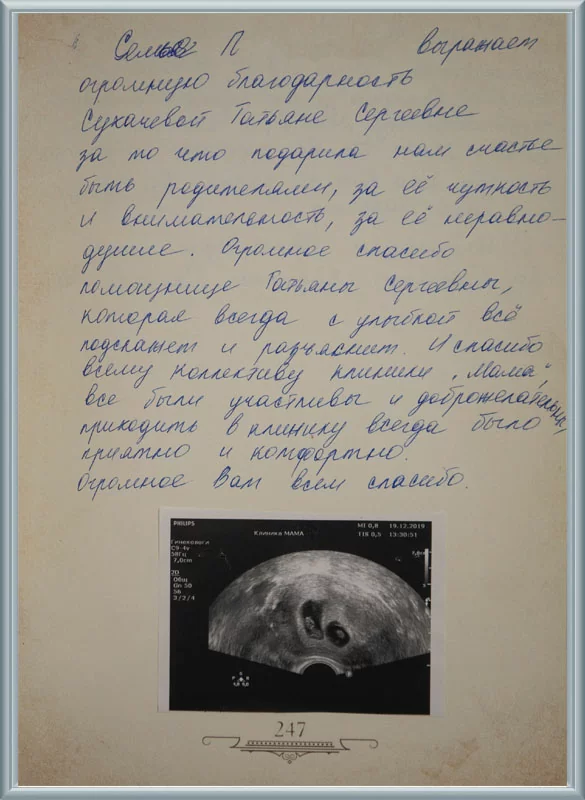 Семья П выражает
огромную благодарность
Сухачевой Татьяне Сергеевне
за то что подарила нам счастье
быть родителями, за её чуткость
и внимательность, за её неравно-
душие. Огромное спасибо
помощнице Татьяны Сергеевны,
которая всегда с улыбкой всё
подскажет и разъяснит. И спасибо
всему коллективу клиники „Мама",
все были участливы и доброжелательны,
приходить в клинику всегда было
приятно и комфортно.
Огромное Вам всем спасибо.
PHILIPS
Клиника МАМА
МГ 0,8 19.12.2019
TIB 0,5 13:30:51
Гинекология
C9-4v
58Гц
7,0cm
2D
Общ
Gn 50
56
3/2/4
247